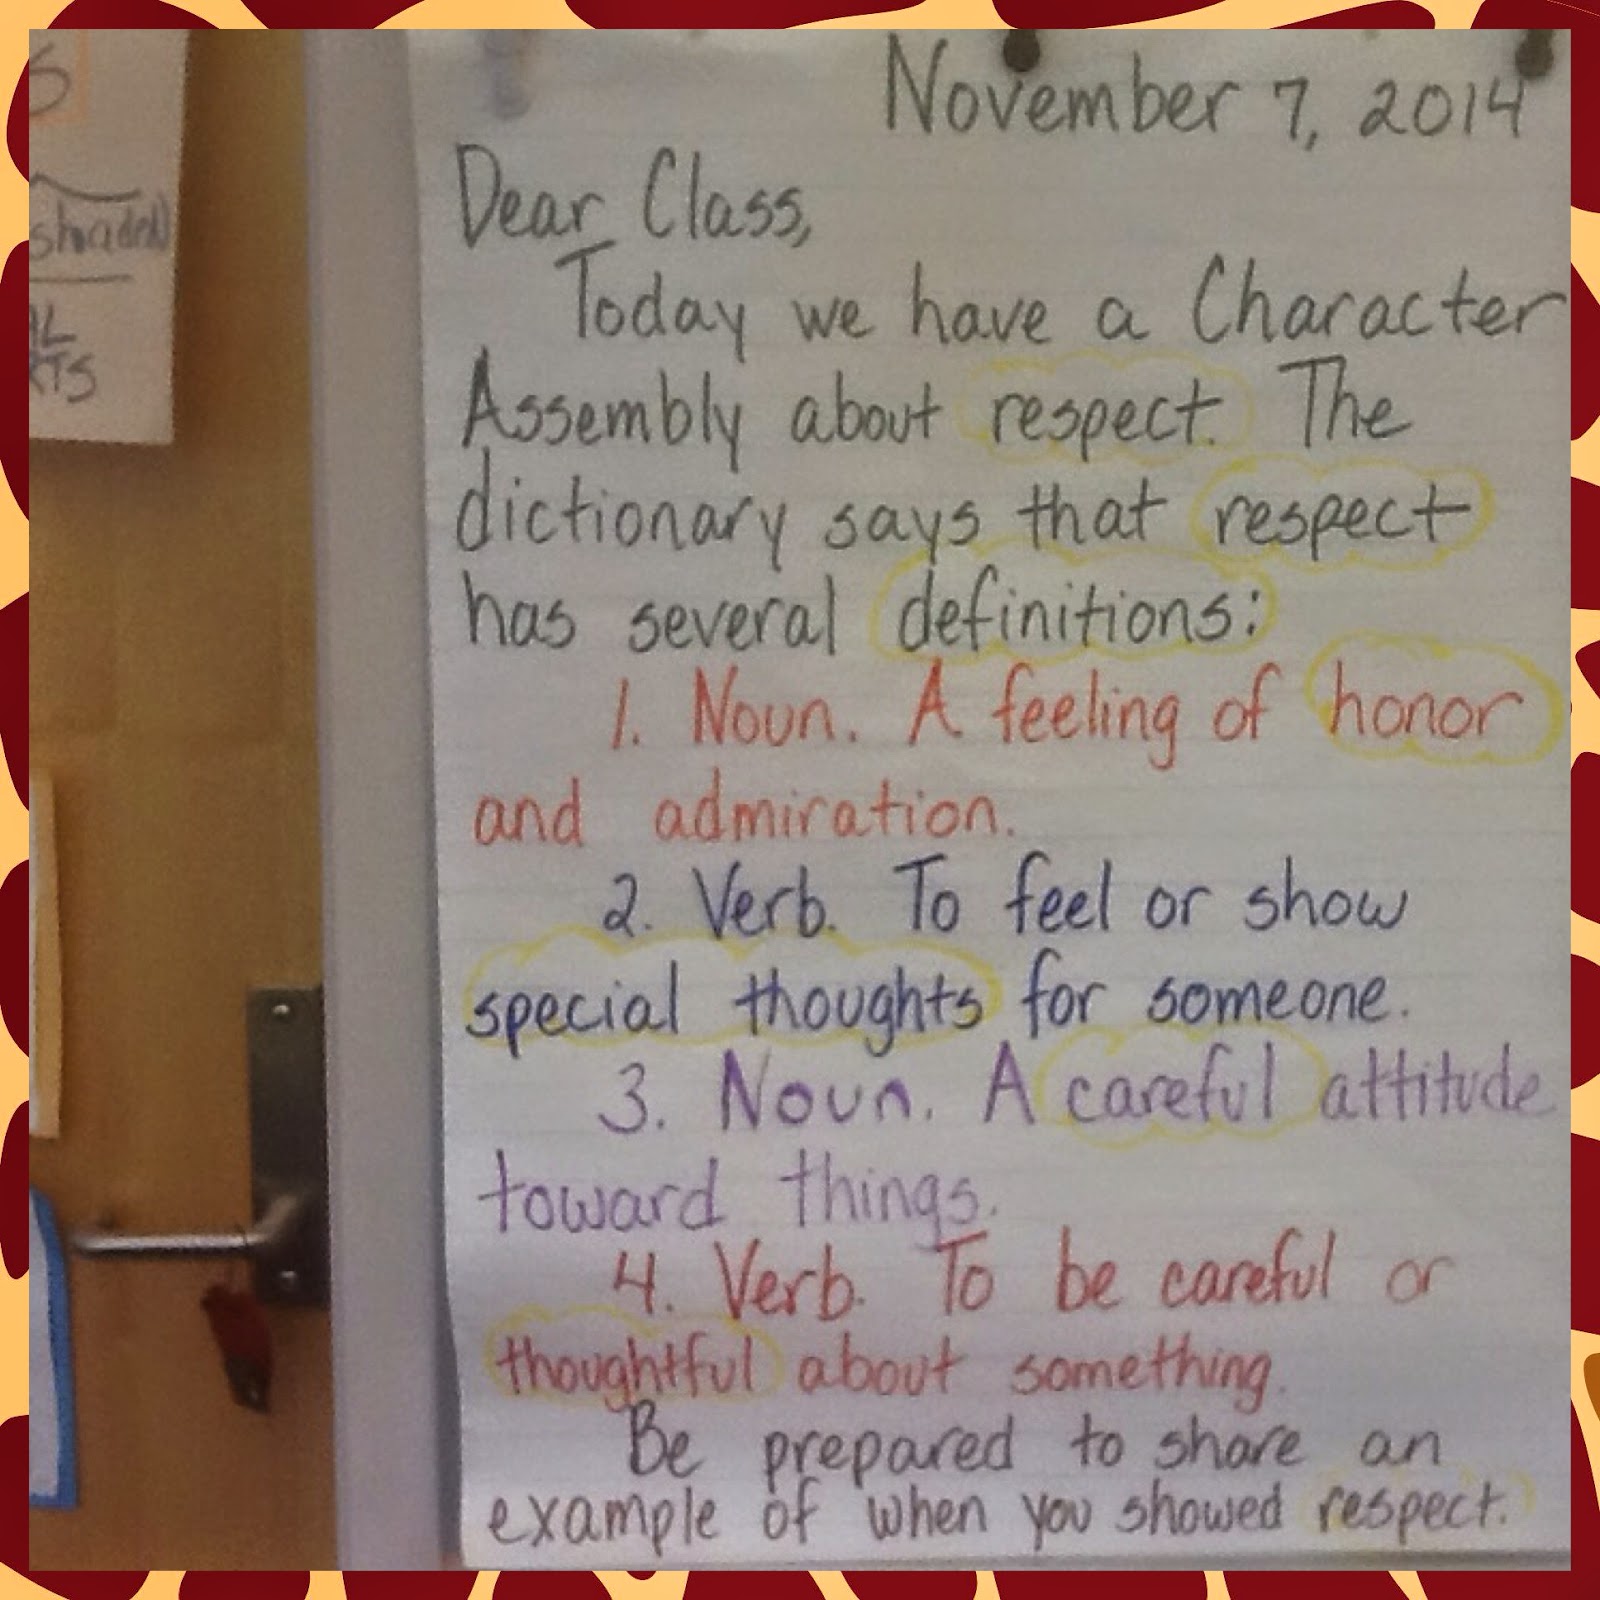 S
shaded)
November 7, 2014
Dear Class,
Today we have a Character
Assembly about respect. The
dictionary says that respect
has several definitions:
1. Noun. A feeling of honor
and admiration.
2. Verb. To feel or show
special thoughts for someone.
3. Noun. A careful attitude
toward things.
4. Verb. To be careful or
thoughtful about something.
Be prepared to share an
example of when you showed respect.